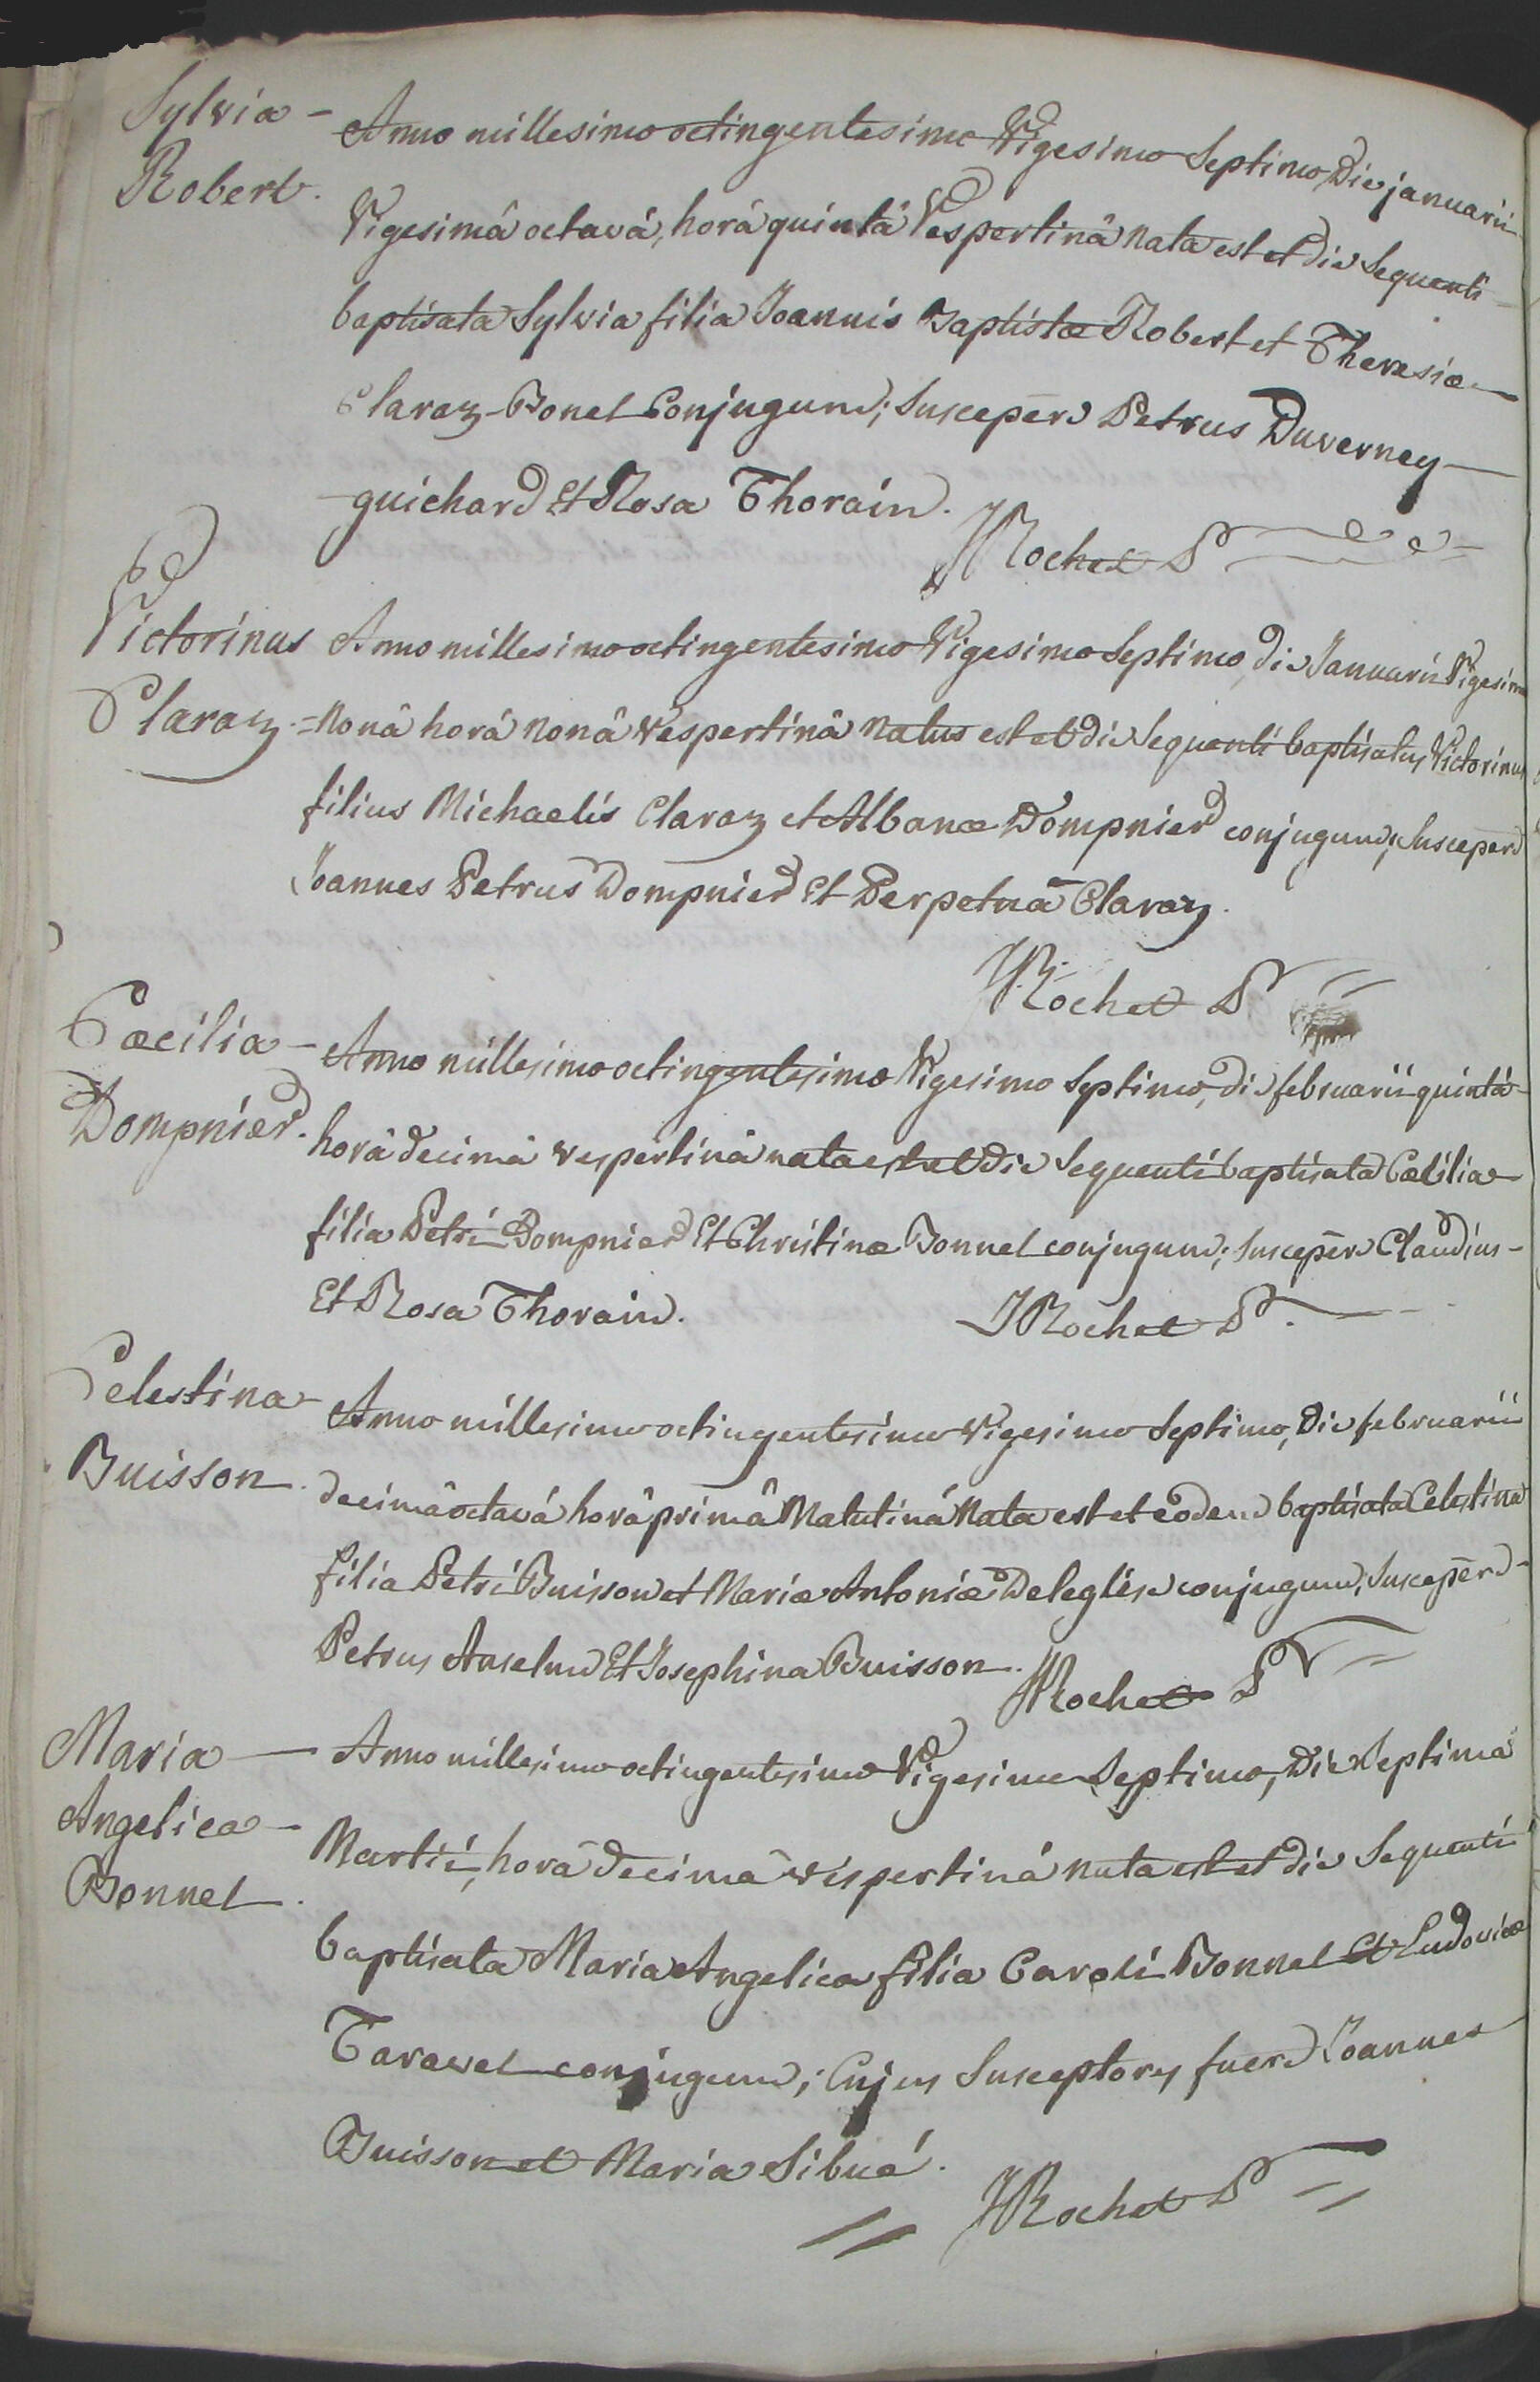 Sylvia -
Robert.
Anno millesimo octingentesimo Vigesimo Septimo Die januarii
Vigesimâ octavâ, horâ quintâ Vespertinâ Nata est et die Sequenti
baptisata Sylvia filia Joannis Baptistæ Robert et Theresiæ
Claraz-Bonel Conjugum; Suscepēre Petrus Duverney
guichard Et Rosa Thorain.
JRochet P
Victorinus
Claraz.
Anno millesimo octingentesimo Vigesimo Septimo, die Januarii Vigesima
= Nonâ horâ nonâ Vespertinâ Natus est et die Sequenti baptisatus Victorinus
filius Michaelis Claraz et Albanæ Dompnier conjugum; Suscepēre
Joannes Petrus Dompnier Et Perpetua Claraz.
JRochet P
Cæcilia -
Dompnier.
Anno millesimo octingentesimo Vigesimo Septimo, die februarii quintâ
horâ decimâ vespertinâ nata est et die Sequenti baptisata Cæcilia
filia Petri Dompnier Et Christinæ Bonnel conjugum; suscepēre Claudius -
Et Rosa Thorain.
JRochet P.
Celestina
Buisson.
Anno millesimo octingentesimo Vigesimo Septimo, Die februarii
decimâ octavâ horâ primâ Matutinâ Nata est et eodem baptisata Celestina
filia Petri Buisson et Mariæ Antoniæ Deleglise conjugum; Suscepēre
Petrus Anselme Et Josephina Buisson.
JRochet P
Maria
Angelica -
Bonnel.
Anno millesimo octingentesimo Vigesimo Septimo, Die Septima
Martii, horâ decimâ vespertinâ nata est et die Sequenti
baptisata Maria Angelica filia Caroli Bonnel Et Ludovicæ
Taravel conjugum; Cujus Susceptores fuere Joannes
Buisson et Maria Sibué.
JRochet P